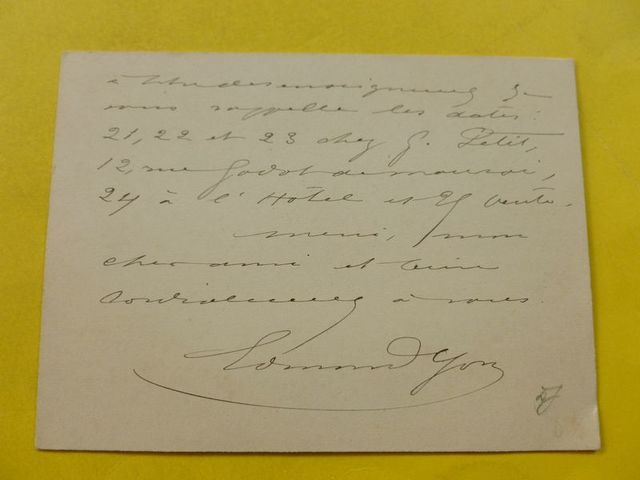 à titre de renseignement je
vous rappelle les dates :
21, 22 et 23 chez G. Petit,
12, rue Godot de mauroi,
24 à l'Hôtel et 25 vente.
merci, mon
cher ami et bien
cordialement à vous.
Edmond Yon